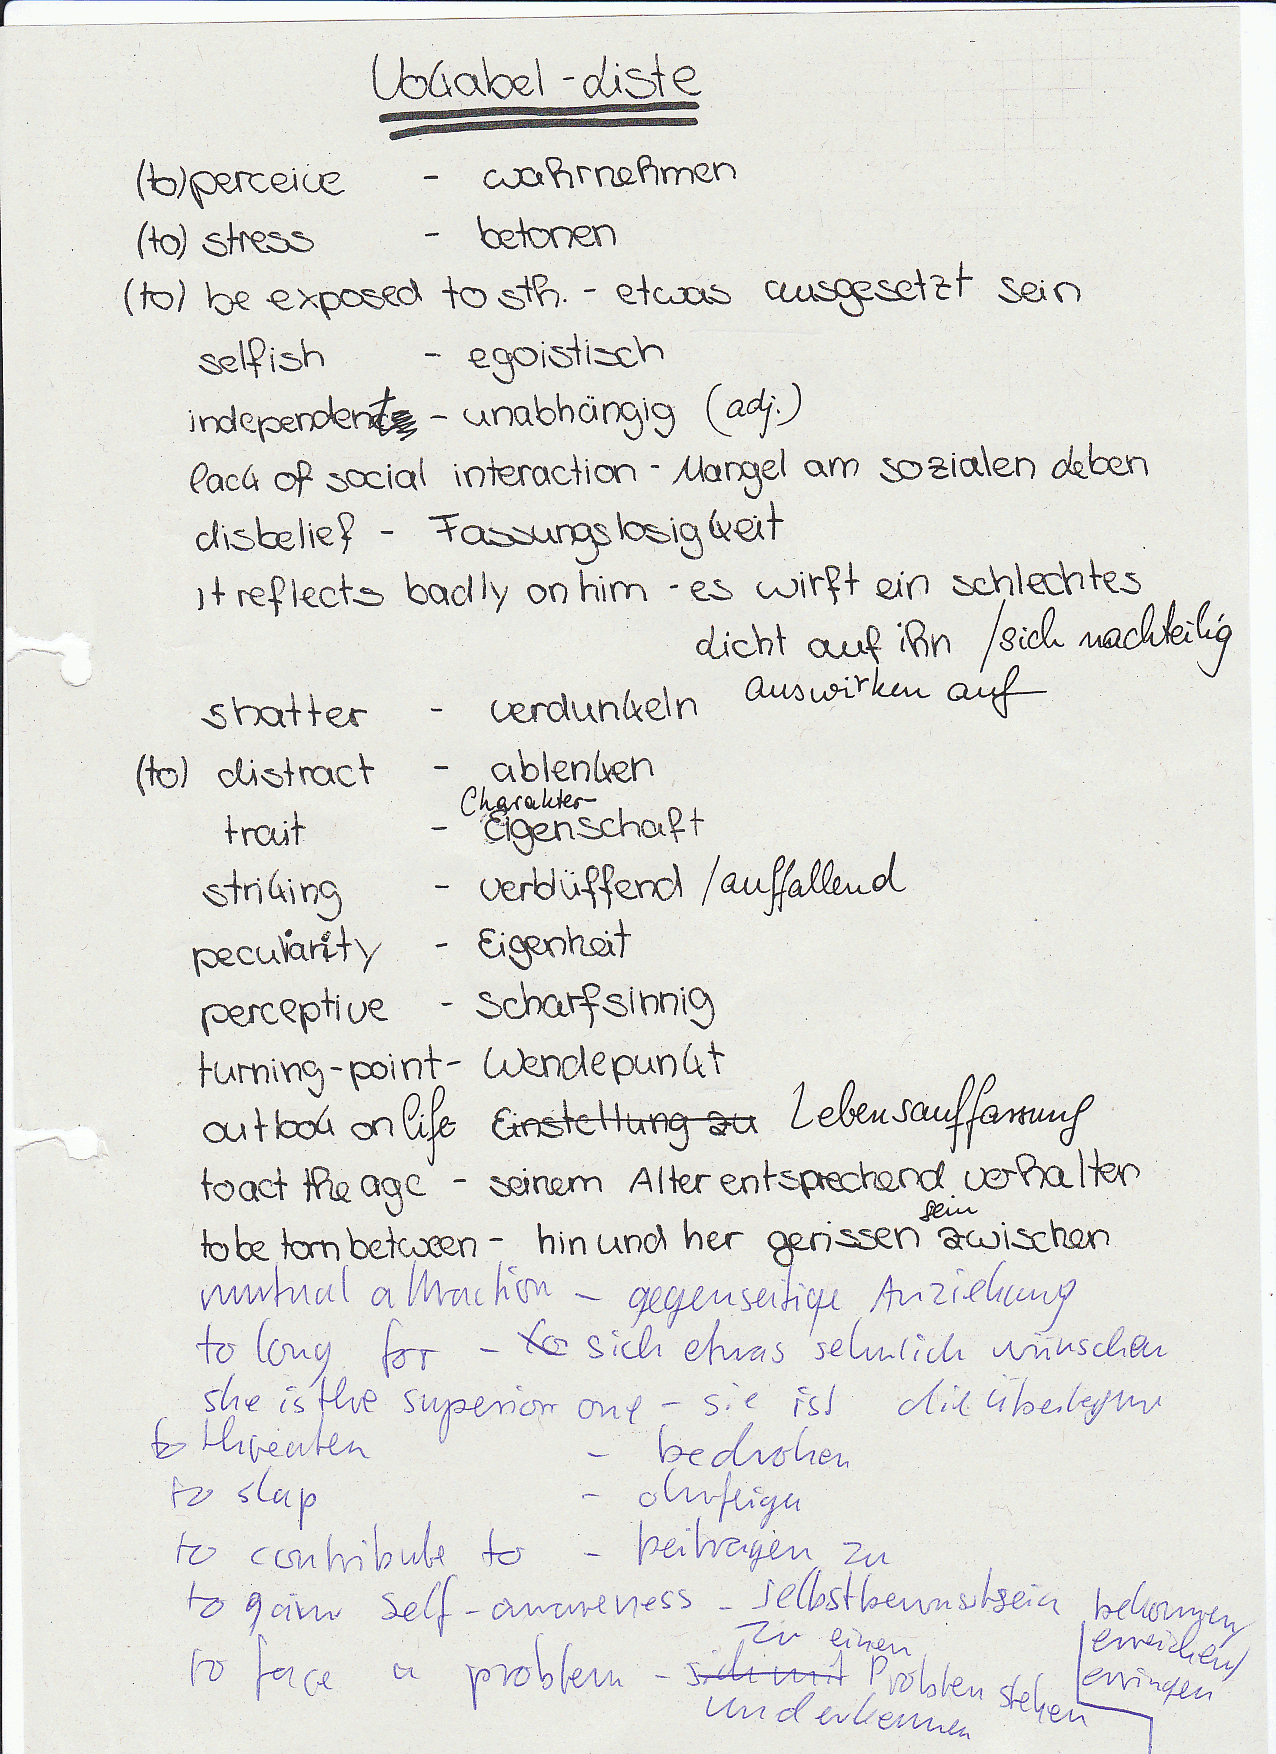 Vokabel-Liste
(to) perceive - wahrnehmen
(to) stress - betonen
(to) be exposed to sth. - etwas ausgesetzt sein
selfish - egoistisch
independent - unabhängig (adj.)
lack of social interaction - Mangel am sozialen Leben
disbelief - Fassungslosigkeit
it reflects badly on him - es wirft ein schlechtes
Licht auf ihn / sich nachteilig
auswirken auf
shatter - verdunkeln
(to) distract - ablenken
Charakter-
trait - Eigenschaft
striking - verblüffend / auffallend
peculiarity - Eigenheit
perceptive - scharfsinnig
turning-point - Wendepunkt
outlook on life Einstellung zu Lebensauffassung
to act the age - seinem Alter entsprechend verhalten
sein
to be torn between - hin und her gerissen zwischen
mutual attraction - gegenseitige Anziehung
to long for - to sich etwas sehnlich wünschen
she is the superior one - sie ist die überlegene
to threaten - bedrohen
to slap - ohrfeigen
to contribute to - beitragen zu
to gain self-awareness - selbstbewusstsein bekommen/
erreichen/
erringen
zu einen
to face a problem - sich mit Problem stehen
und erkennen